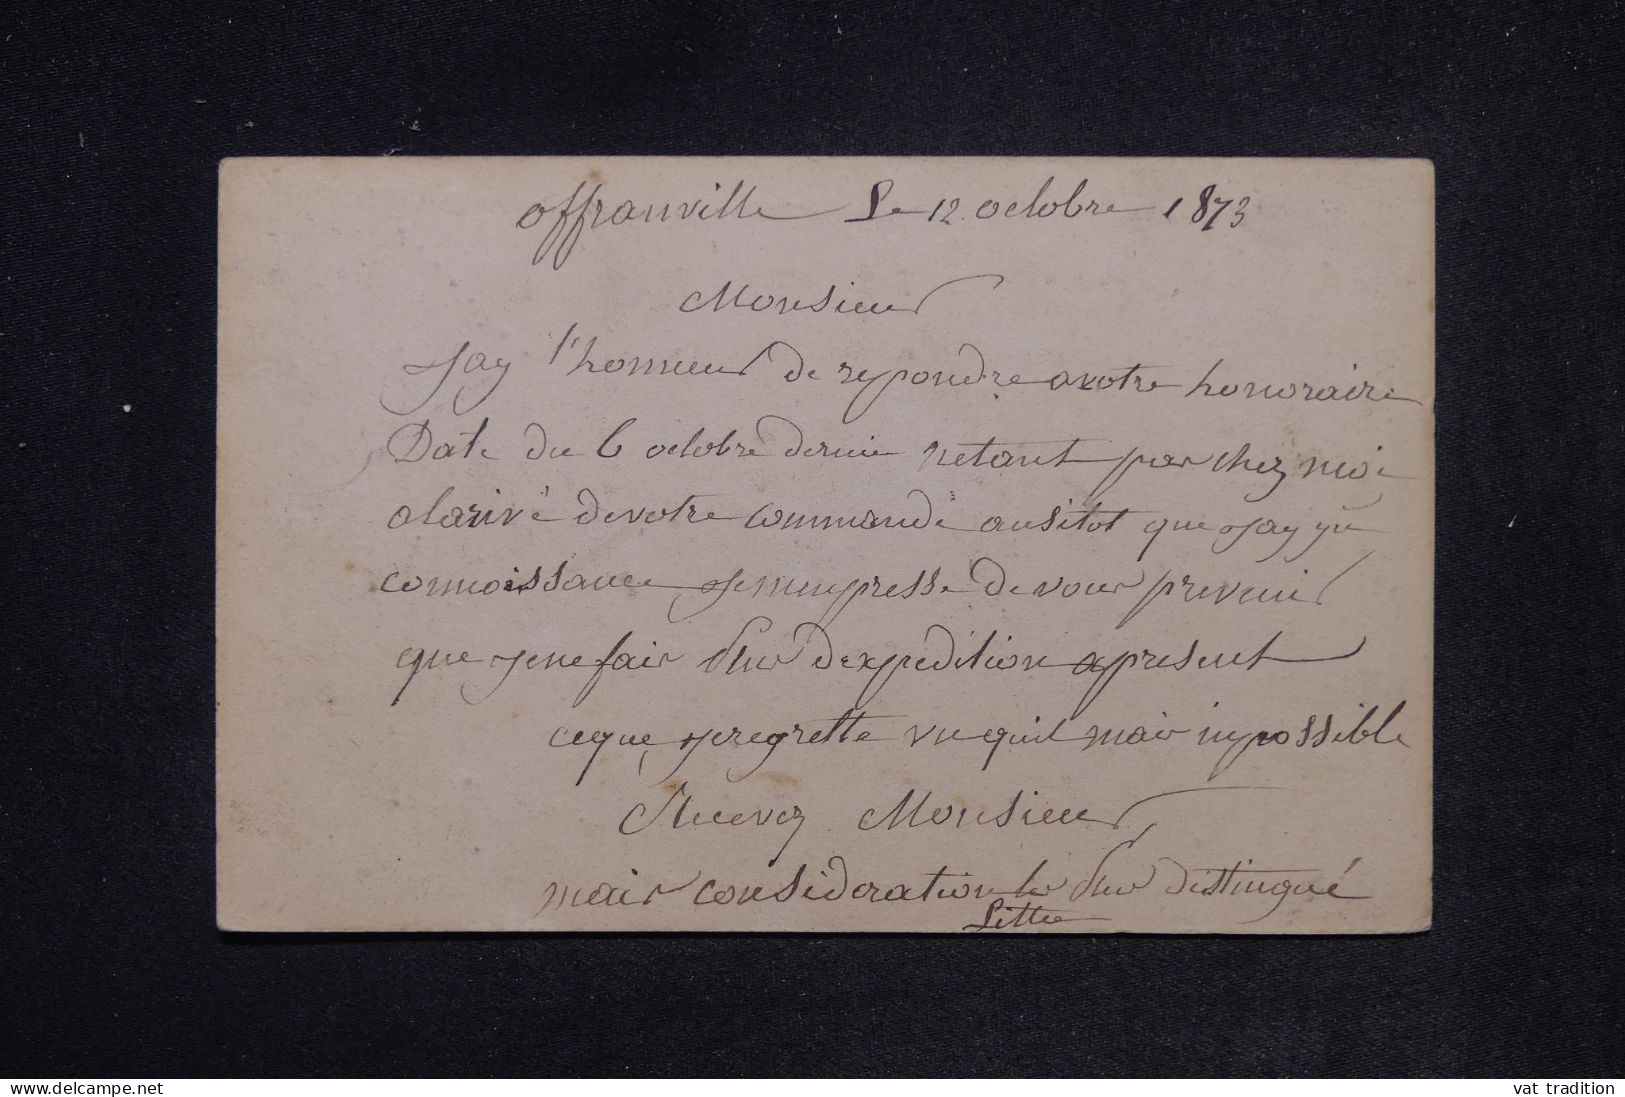 offranville Le 12 octobre 1873
Monsieur
Jay l'honneur de repondre avotre honoraire
Date du 6 octobre dernie netant pas chez moi
alarivé devotre commande ausitot que Jay yu
connoissance Jemempresse devous prevenir
que Jenefais plus dexpedition apresent
ceque Jeregrette vuquil mais inpossible
Recevez Monsieur
mais consideration les plus distingué
www.delcampe.net
vat tradition